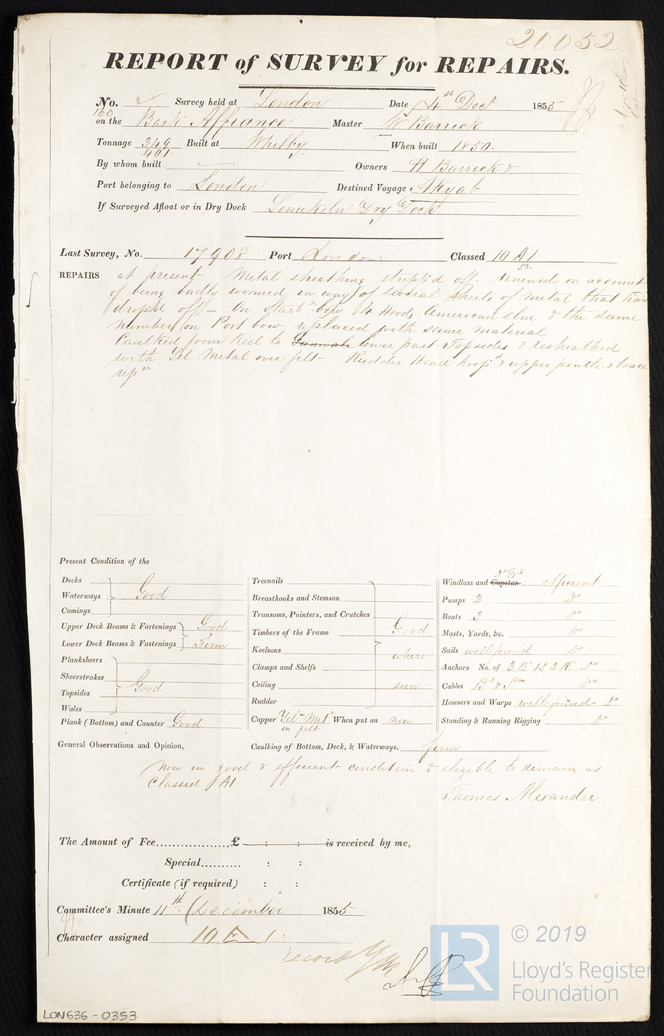 20052
REPORT of SURVEY for REPAIRS.
No. Survey held at London Date 4th Decr 1855
160
on the Bark Affiance Master W Barrick
Tonnage 349 Built at Whitby When built 1850.
401
By whom built Owners H Barrick &
Port belonging to London Destined Voyage Akyab
If Surveyed Afloat or in Dry Dock Limekiln Dry Dock
Last Survey, No. 17908 Port London Classed 10 A1
52
REPAIRS at present Metal sheathing stripp'd off renewed on account
of being badly wormed in way of several sheets of metal that had
dropt off - On Starbd bow 14 Hoods American Elm & the same
number on Port bow, replaced with same material
Caulked from Keel to Gunwale lower part Topsides & resheathed
with Yel Metal over felt - Rudder Head hoop'd & upper pintle & brace
repd
Present Condition of the
Decks
Waterways Good
Comings
Upper Deck Beams & Fastenings Good
Lower Deck Beams & Fastenings Firm
Planksheers
Sheerstrakes Good
Topsides
Wales
Plank (Bottom) and Counter Good
Treenails
Breasthooks and Stemson
Transoms, Pointers, and Crutches
Timbers of the Frame Good
Keelsons where
Clamps and Shelfs
Ceiling seen
Rudder
Copper Yel Metl When put on now
on felt
Windlass and Capstan efficient
Pumps 2 Do
Boats 3 Do
Masts, Yards, &c. Do
Sails well found Do
Anchors No. of 3 Br 1 S 2 K Do
Cables Do
Hawsers and Warps well found Do
Standing & Running Rigging Do
General Observations and Opinion, Caulking of Bottom, Deck, & Waterways. firm
Now in good & efficient condition & eligible to remain as
Classed A1
Thomas Alexander
The Amount of Fee................£ : : is received by me,
Special.......... : :
Certificate (if required) : :
Committee's Minute 11th December 1855
Character assigned 10 A 1.
© 2019
Lloyd's Register
Foundation
LR
LON636-0353